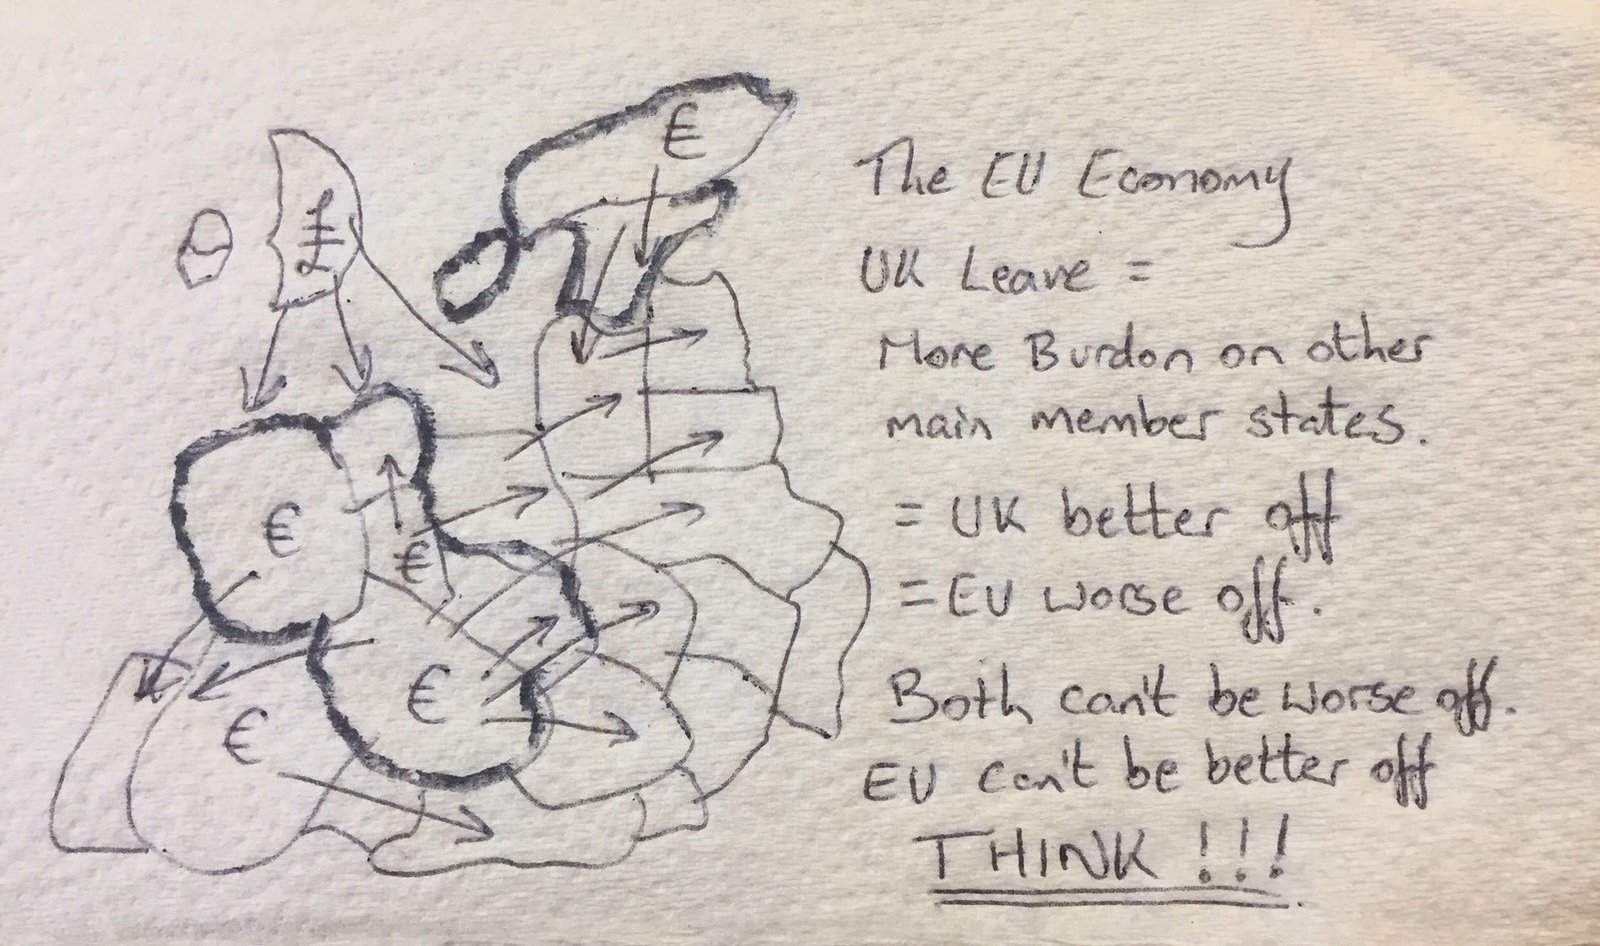 £
€
€
€
€
€
The EU Economy
UK Leave =
More Burdon on other
main member states.
= UK better off
= EU worse off.
Both can't be worse off.
EU can't be better off
THINK !!!